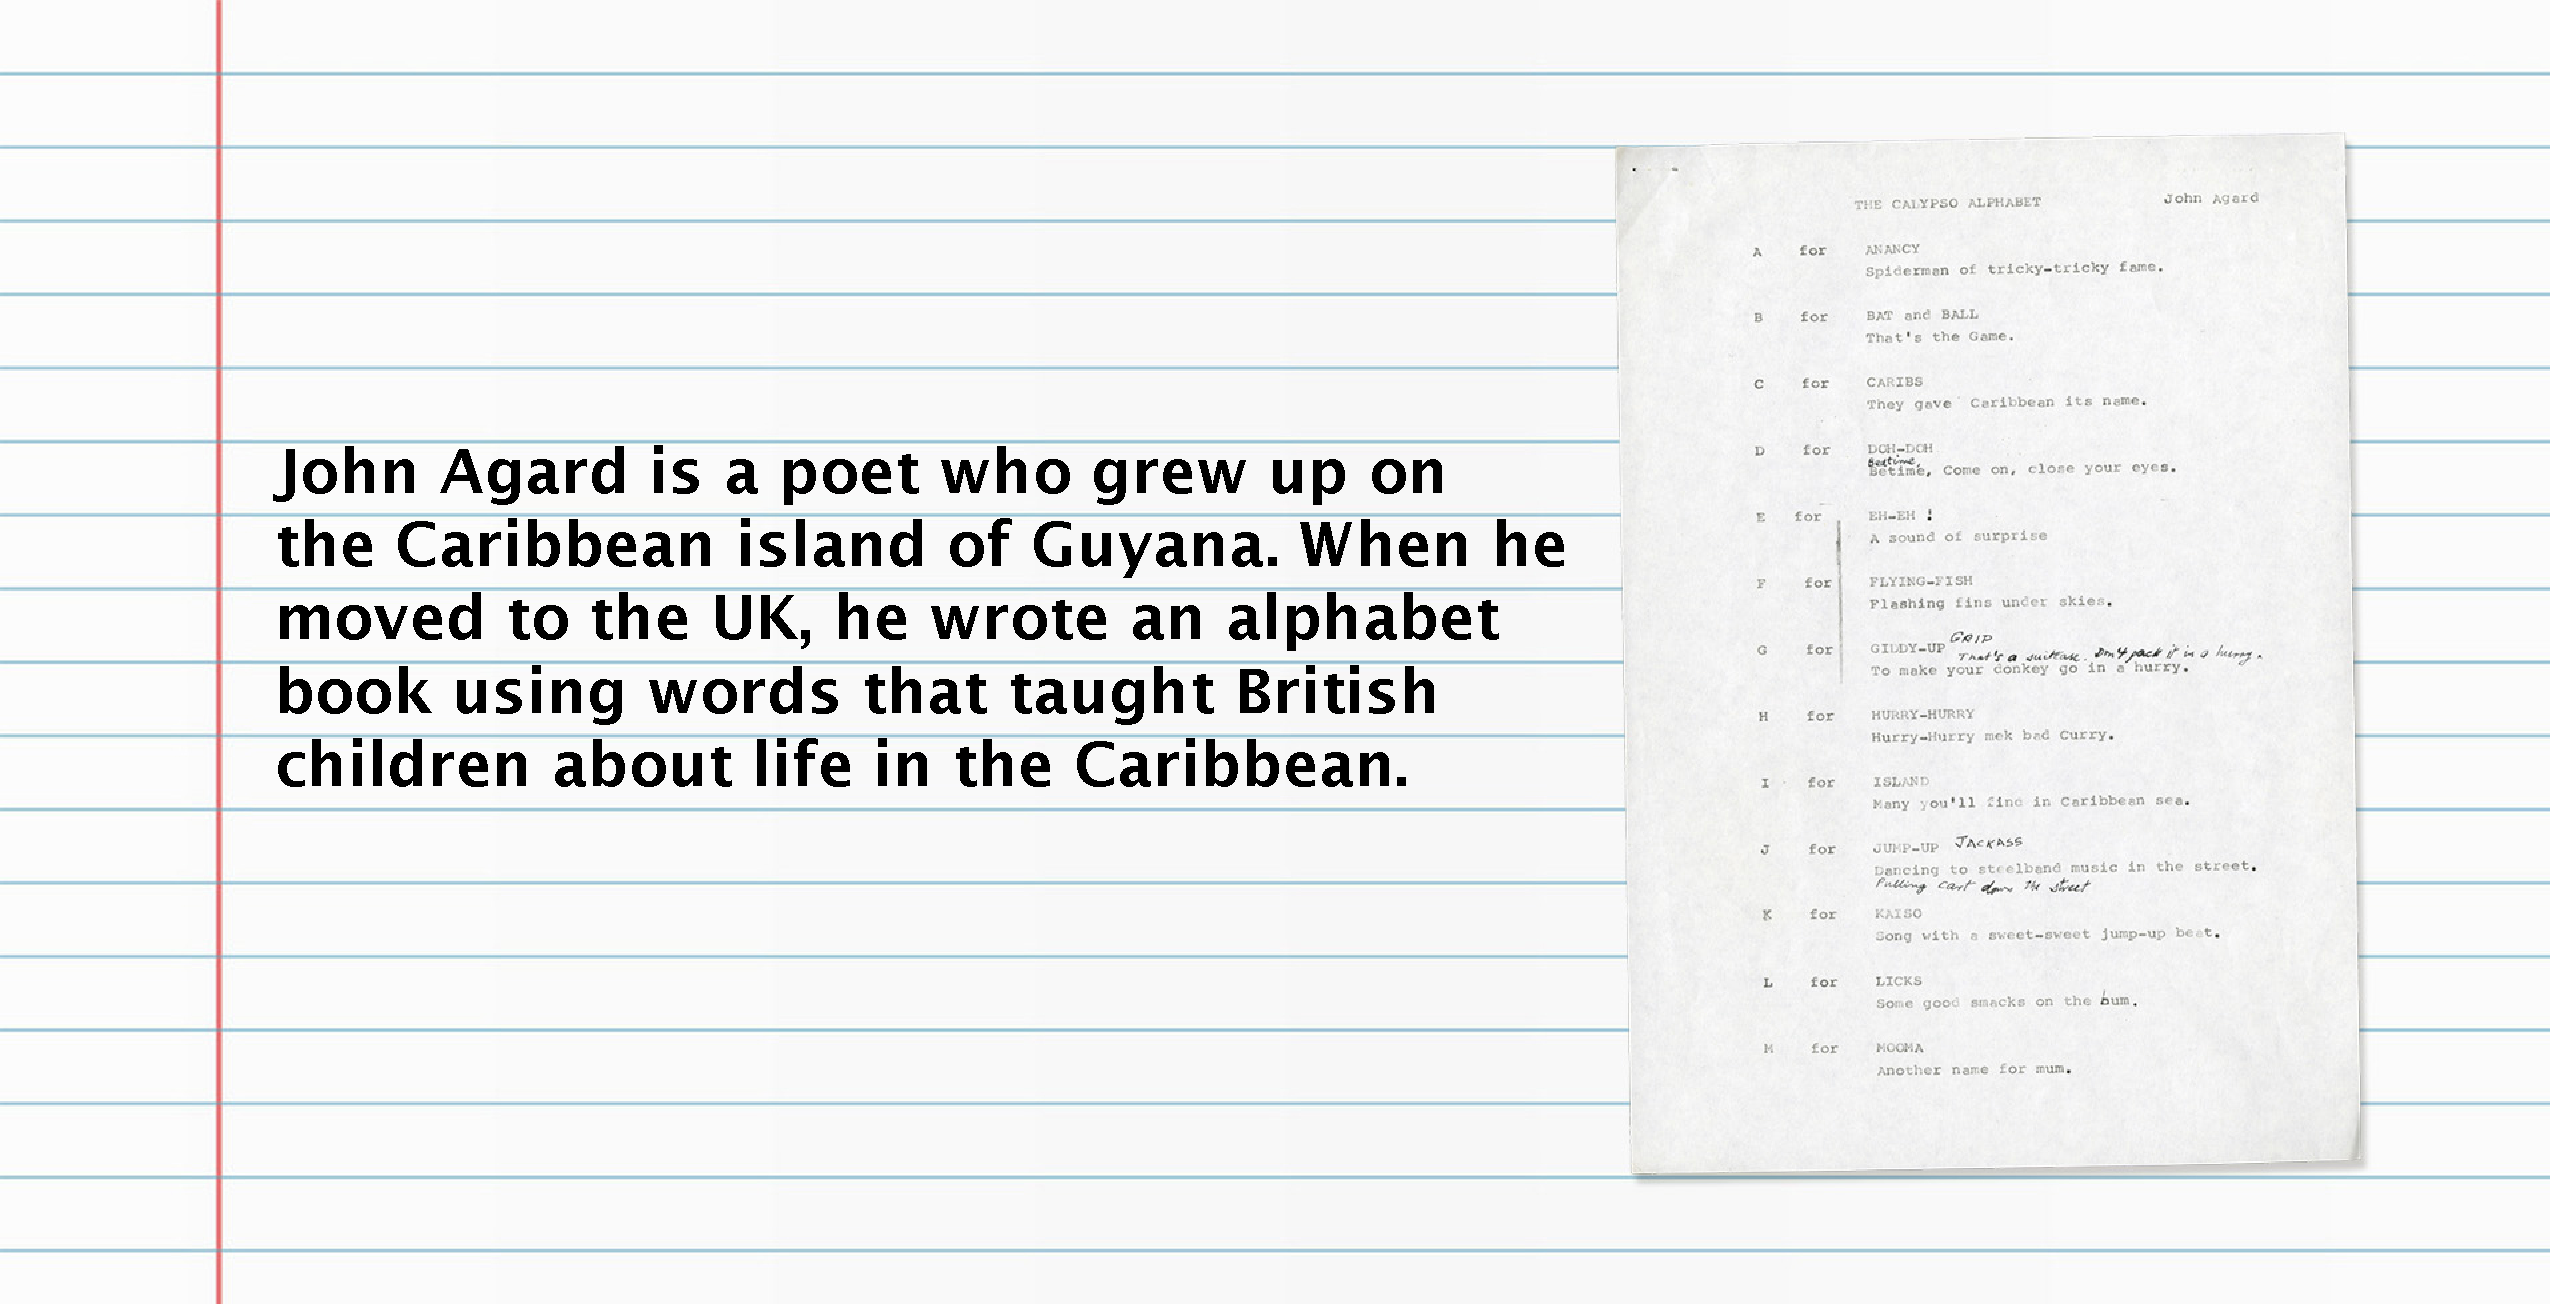 John Agard is a poet who grew up on
the Caribbean island of Guyana. When he
moved to the UK, he wrote an alphabet
book using words that taught British
children about life in the Caribbean.
THE CALYPSO ALPHABET John Agard
A for ANANCY
Spiderman of tricky-tricky fame.
B for BAT and BALL
That's the Game.
C for CARIBS
They gave Caribbean its name.
D for DOH-DOH
Bedtime,
Betime, Come on, close your eyes.
E for EH-EH !
A sound of surprise
F for FLYING-FISH
Flashing fins under skies.
G for GIDDY-UP GRIP
That's a suitcase. Don't pack it in a hurry.
To make your donkey go in a hurry.
H for HURRY-HURRY
Hurry-Hurry mek bad Curry.
I for ISLAND
Many you'll find in Caribbean sea.
J for JUMP-UP JACKASS
Dancing to steelband music in the street.
Pulling cart down the street
K for KAISO
Song with a sweet-sweet jump-up beat.
L for LICKS
Some good smacks on the bum.
M for MOOMA
Another name for mum.